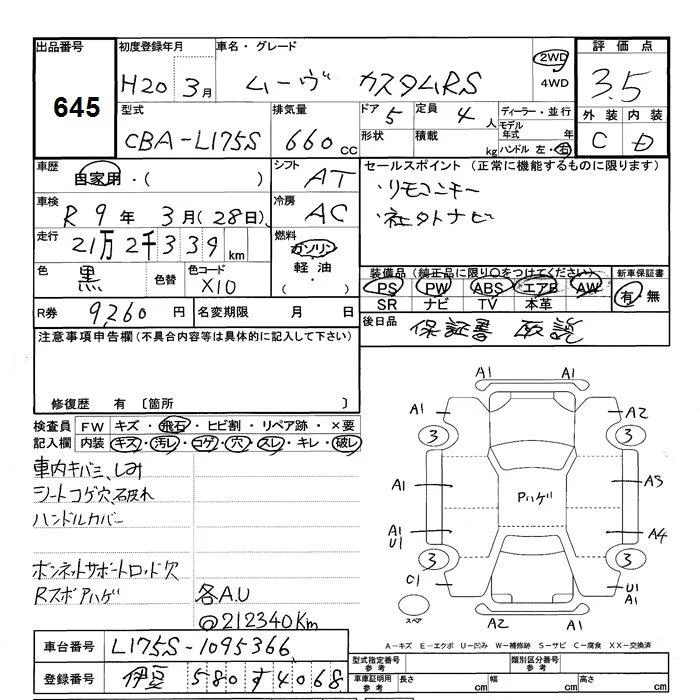 出品番号 初度登録年月 車名・グレード 2WD 評価点
645 H20 3月 ムーヴ カスタムRS 4WD 3.5
型式 排気量 ドア 5 定員 4人 ディーラー・並行 外装 内装
CBA-L175S 660cc 形状 積載 kg モデル年式 年 ハンドル 左・右 C D
車歴 自家用・( ) シフト AT セールスポイント (正常に機能するものに限ります)
車検 R9年 3月(28日) 冷房 AC ・リモコンキー
・社外ナビ
走行 21万2千339km 燃料 ガソリン 軽油・( )
色 黒 色替 色コード X10 装備品(純正品に限り○をつけてください) 新車保証書
PS PW ABS エアB AW 有・無
SR ナビ TV 本革
R券 9,260円 名変期限 月 日 後日品 保証書 取説
注意事項申告欄(不具合内容等は具体的に記入して下さい)
修復歴 有 〔箇所 〕
検査員 FW キズ・飛石・ヒビ割・リペア跡・×要
記入欄 内装 キズ・汚レ・コゲ・穴・スレ・キレ・破レ
車内キバミ、しみ
シートコゲ穴、破れ
ハンドルカバー
ボンネットサポートロッド欠
Rスポアハゲ 各A.U
@212340Km
A1
A1 A2
3 3
A1 A3
Pハゲ
A1 A4
U1
3 3
C1 U1
A1
スペア A2 A1
A-キズ E-エクボ U-凹み W-補修跡 S-サビ C-腐食 XX-交換済
車台番号 L175S-1095366
型式指定番号 参考 類別区分番号 参考
登録番号 伊豆 580 す 4068
車庫証明用 参考 長さ cm 幅 cm 高さ cm